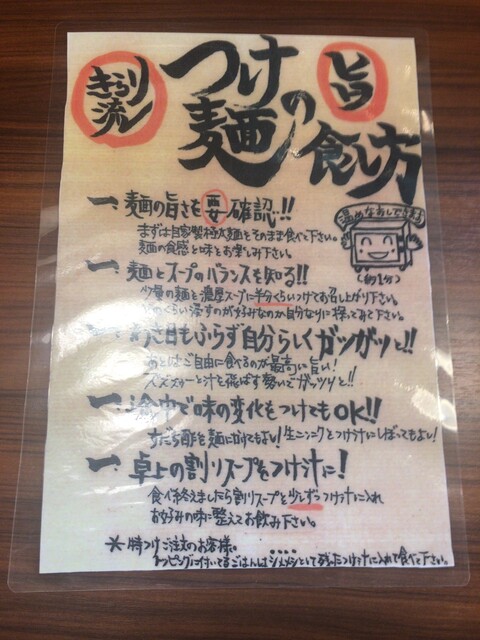 きらり流
つけ麺の旨い食し方
一、麺の旨さを要確認!!
まずは自家製極太麺をそのまま食べて下さい。
麺の食感と味をお楽しみ下さい。
温めなおしできます
(約1分)
一、麺とスープのバランスを知る!!
少量の麺を濃厚スープに半分くらいつけてお召し上がり下さい。
どのくらい浸すのが好みなのか自分なりに探ってみて下さい。
一、わき目もふらず自分らしくガツガツと!!
あとはご自由に食べるのが最高に旨い!
ズズズーッと汁を飛ばす勢いでガッツリと!!
一、途中で味の変化をつけてもOK!!
すだち酢を麺に掛けてもよし!生ニンニクをつけ汁にしぼってもよし!
一、卓上の割りスープをつけ汁に!
食べ終えましたら割りスープを少しずつつけ汁に入れ
お好みの味に整えてお飲み下さい。
*、特つけご注文のお客様。
トッピングに付いてるごはんはシメメシとして残ったつけ汁に入れて食べて下さい。